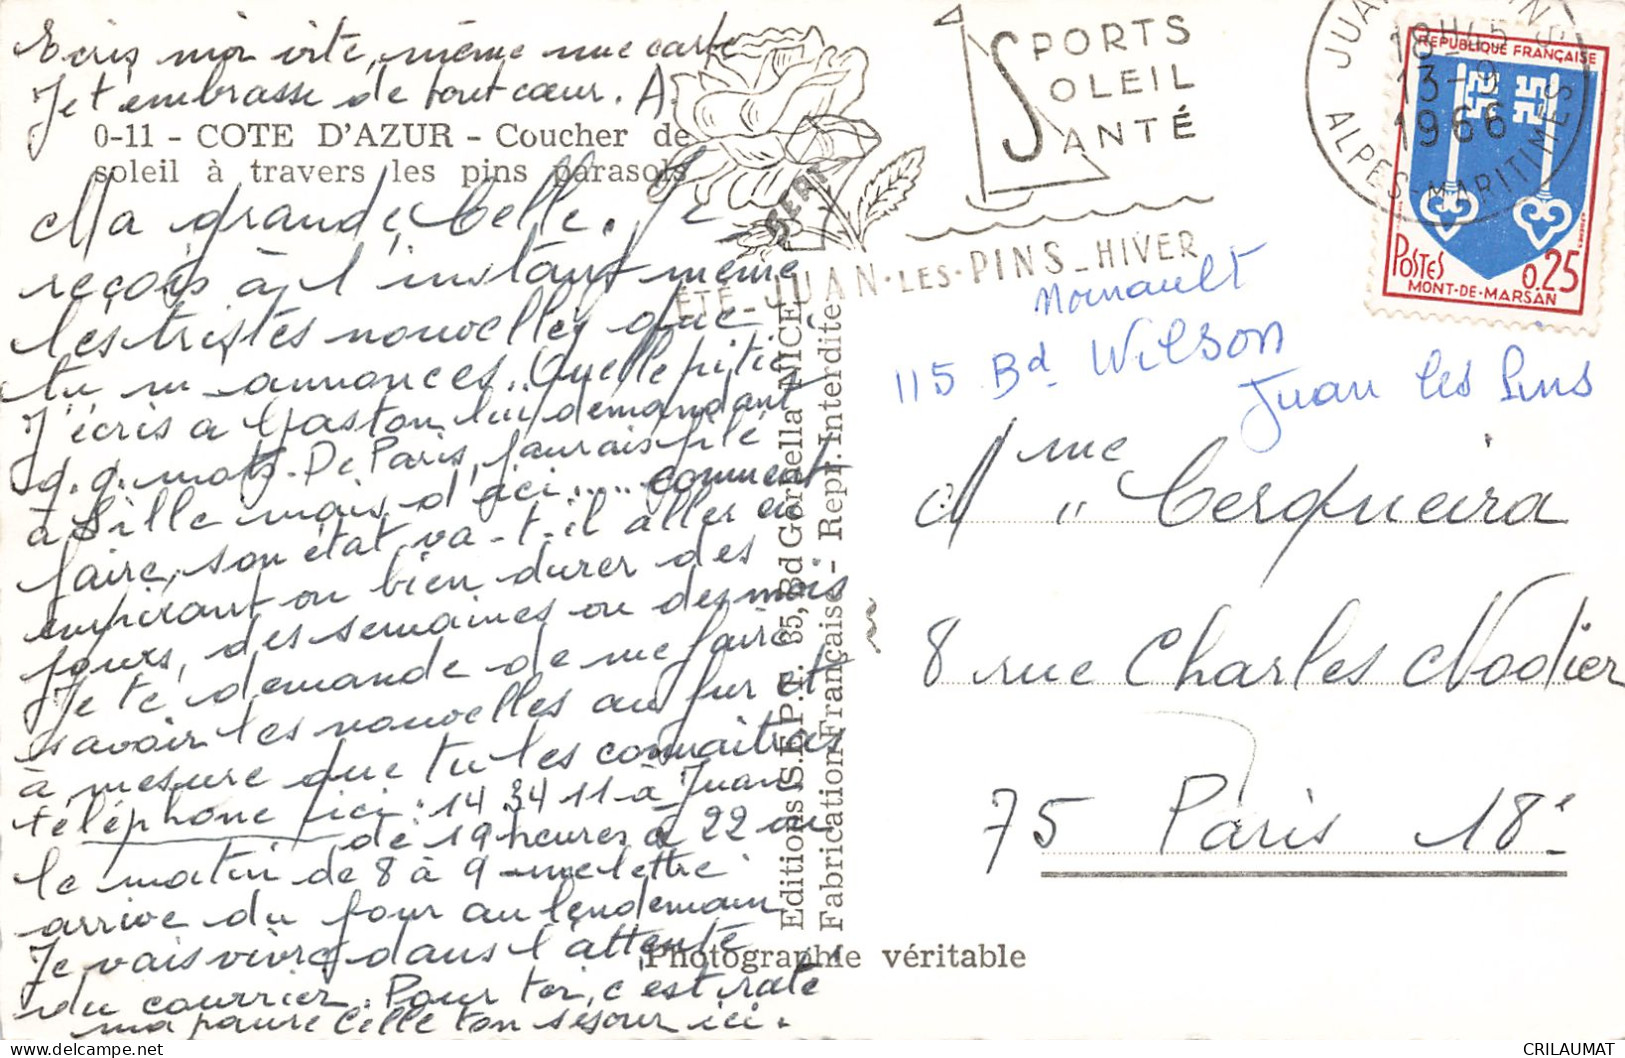 Ecris moi vite, même une carte
Je t'embrasse de tout cœur. A.
0-11 - COTE D'AZUR - Coucher de
soleil à travers les pins parasols
Ma grande belle. Je
reçois à l'instant même
les tristes nouvelles que
tu m'annonces.. Quelle pitié
J'écris a Gaston lui demandant
q.q. mots. De Paris, j'aurais filé
à Lille mais d'ici.... comment
faire, son état va-t-il aller en
empirant ou bien durer des
jours, des semaines ou des mois
Je te demande de me faire
savoir les nouvelles au fur et
à mesure que tu les connaitras
téléphone ici : 14 34 11 à Juan
de 19 heures à 22 ou
le matin de 8 à 9 - une lettre
arrive du jour au lendemain
Je vais vivre dans l'attente
du courrier. Pour toi, c'est raté
ma pauvre belle ton séjour ici.
Editions S.E.P.T. 65, Bd Gorbella NICE
Fabrication Française - Repr. Interdite
Photographie véritable
SPORTS
SOLEIL
SANTÉ
ÉTÉ - JUAN-LES-PINS - HIVER
JUAN PINS
18H45
13-9
1966
ALPES-MARITIMES
REPUBLIQUE FRANÇAISE
POSTES 0,25
MONT-DE-MARSAN
115 Bd Wilson
Juan les Pins
Mme Cerqueira
8 rue Charles Nodier
75 Paris 18e
CRILAUMAT